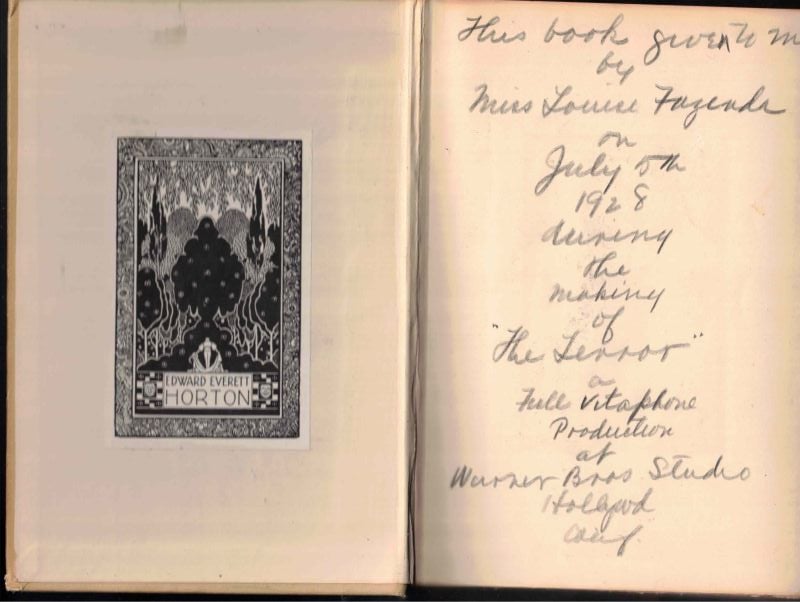 EDWARD EVERETT
HORTON
This book given to m
by
Miss Louise Fazenda
on
July 5th
1928
during
the
making
of
"The Terror"
a
Full Vitaphone
Production
at
Warner Bros Studio
Hollywd
Calif.